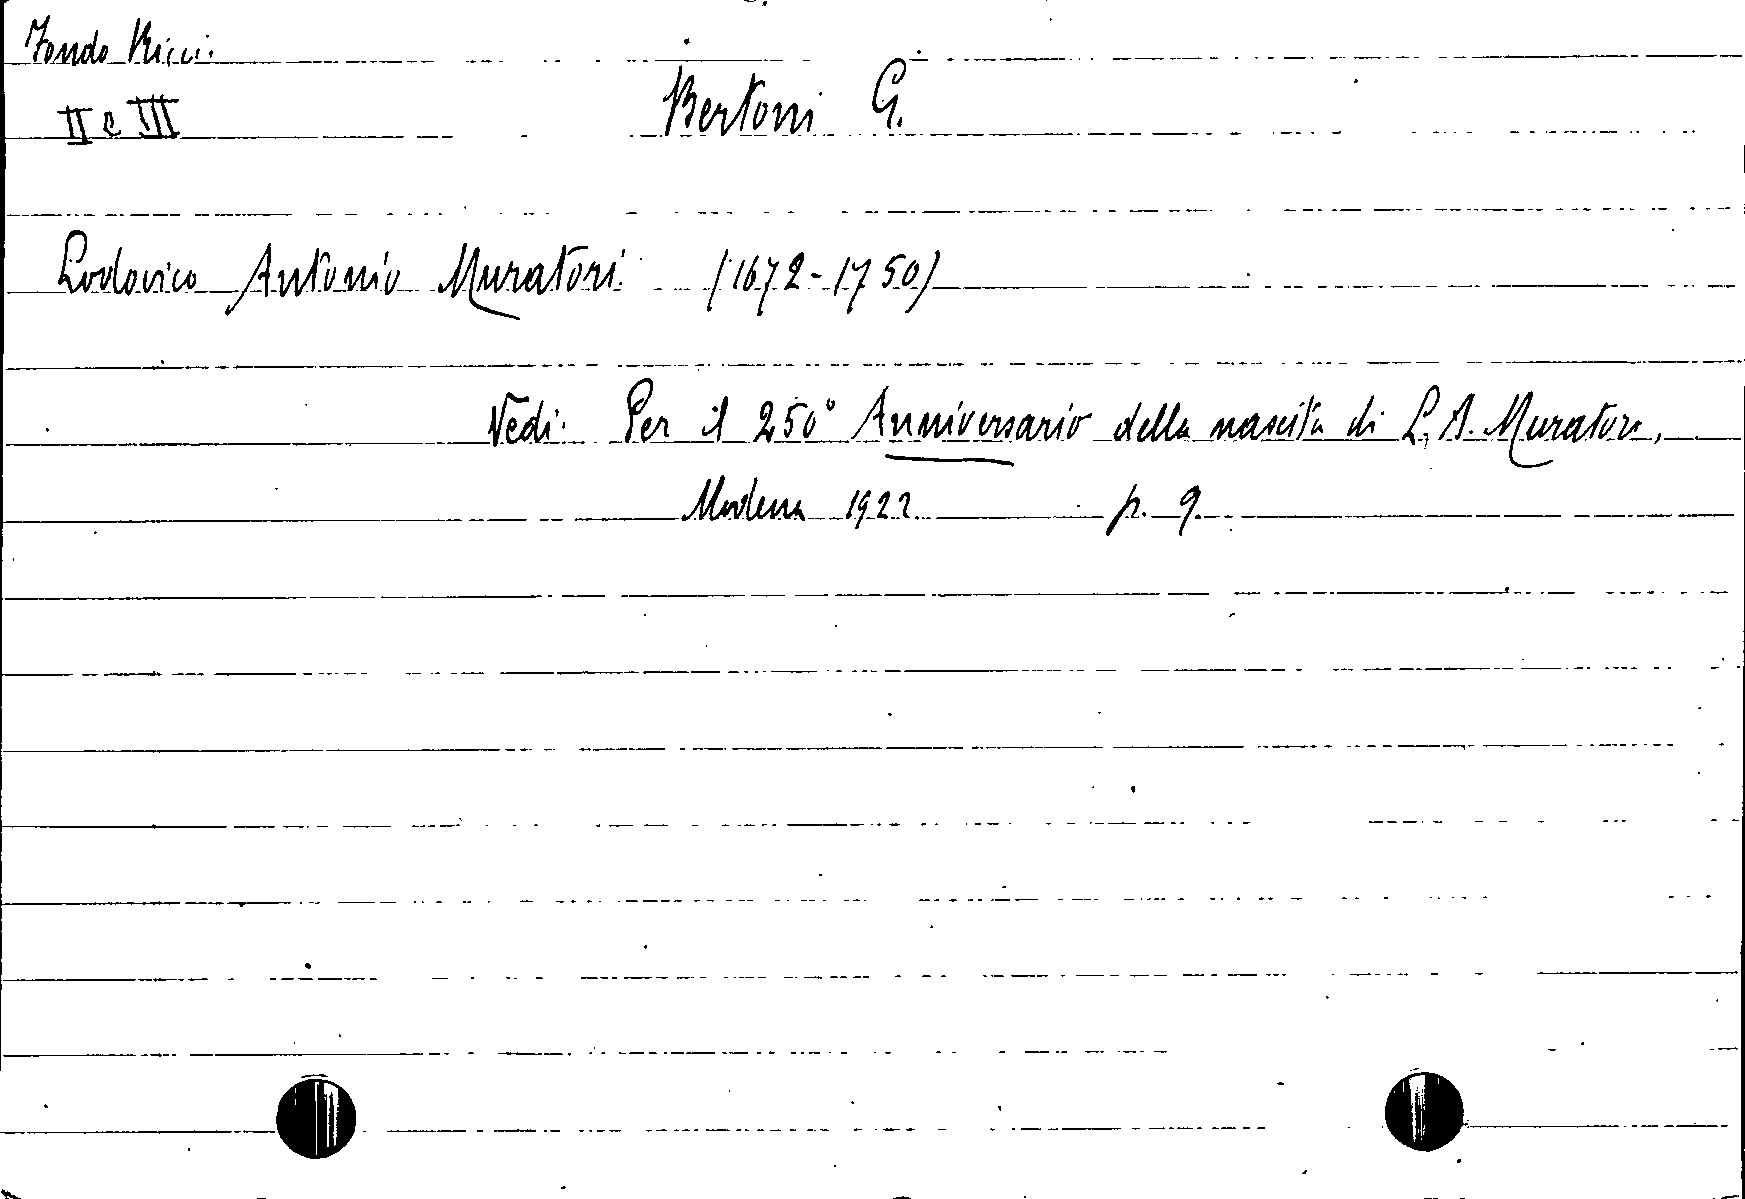 Fondo Ricci.
II e III
Bertoni G.
Lodovico Antonio Muratori (1672-1750)
Vedi: Per il 250° Anniversario della nascita di L. A. Muratori,
Modena 1922 p. 9.